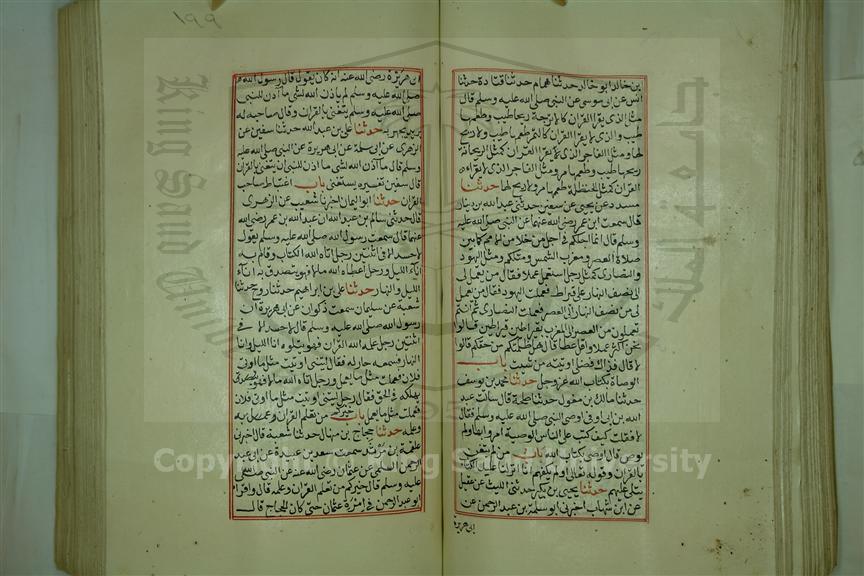 بن خالد ابو خالد حدثنا همام حدثنا قتادة حدثنا
انس عن ابي موسى عن النبي صلى الله عليه وسلم قال
مثل الذي يقرأ القران كالاترجة ريحها طيب وطعمها
طيب والذي لا يقرأ القران كالتمرة طعمها طيب ولا ريح
لها ومثل الفاجر الذي يقرأ القران كمثل الريحانة
ريحها طيب وطعمها مر ومثل الفاجر الذي لا يقرأ
القران كمثل الحنظلة طعمها مر ولا ريح لها حدثنا
مسدد عن يحيى عن سفين حدثني عبد الله بن دينار
قال سمعت ابن عمر رضي الله عنهما عن النبي صلى الله عليه
وسلم قال انما اجلكم في اجل من خلا من الامم كما بين
صلاة العصر ومغرب الشمس ومثلكم ومثل اليهود
والنصارى كمثل رجل استعمل عمالا فقال من يعمل لي
الى نصف النهار على قيراط فعملت اليهود فقال من يعمل
لي من نصف النهار الى العصر فعملت النصارى ثم انتم
تعملون من العصر الى المغرب بقيراطين قيراطين قالوا
نحن اكثر عملا واقل عطا قال هل ظلمتكم من حقكم قالوا
لا قال فذاك فضلي اوتيه من شئت باب
الوصاة بكتاب الله عز وجل حدثنا محمد بن يوسف
حدثنا مالك بن مغول حدثنا طلحة قال سالت عبد
الله بن ابي اوفى اوصى النبي صلى الله عليه وسلم فقال
لا فقلت كيف كتب على الناس الوصية امروا بها ولم
يوص قال اوصى بكتاب الله باب من لم يتغن
بالقران وقوله تعالى اولم يكفهم انا انزلنا عليك الكتاب
يتلى عليهم حدثنا يحيى بن بكير حدثني الليث عن عقيل
عن ابن شهاب اخبرني ابو سلمة بن عبد الرحمن عن
ابي هريرة
١٩٩
ابي هريرة رضي الله عنه انه كان يقول قال رسول الله
صلى الله عليه وسلم لم ياذن الله لشي ما اذن للنبي
صلى الله عليه وسلم يتغنى بالقران وقال صاحب له
يريد يجهر به حدثنا علي بن عبد الله حدثنا سفين عن
الزهري عن ابي سلمة عن ابي هريرة عن النبي صلى الله عليه
وسلم قال ما اذن الله لشي ما اذن للنبي ان يتغنى بالقران
قال سفين تفسيره يستغنى باب اغتباط صاحب
القران حدثنا ابو اليمان اخبرنا شعيب عن الزهري
قال حدثني سالم بن عبد الله ان عبد الله بن عمر رضي الله
عنهما قال سمعت رسول الله صلى الله عليه وسلم يقول
لا حسد الا في اثنتين رجل اتاه الله الكتاب وقام به
اناء الليل ورجل اعطاه الله مالا فهو يتصدق به اناء
الليل والنهار حدثنا علي بن ابراهيم حدثنا روح حدثنا
شعبة عن سليمان سمعت ذكوان عن ابي هريرة ان
رسول الله صلى الله عليه وسلم قال لا حسد الا في
اثنتين رجل علمه الله القران فهو يتلوه انا الليل وانا
النهار فسمعه جار له فقال ليتني اوتيت مثل ما اوتي
فلان فعملت مثل ما يعمل ورجل اتاه الله مالا فهو
يهلكه في الحق فقال رجل ليتني اوتيت مثل ما اوتي فلان
فعملت مثل ما يعمل باب خيركم من تعلم القران
وعلمه حدثنا حجاج بن منهال حدثنا شعبة قال اخبرني
علقمة بن مرثد سمعت سعد بن عبيدة عن ابي عبد
الرحمن السلمي عن عثمان رضي الله عنه عن النبي صلى الله
عليه وسلم قال خيركم من تعلم القران وعلمه قال واقرا
ابو عبد الرحمن في امرة عثمان حتى كان الحجاج قال
King Saud University
جامعة الملك
Copyright © King Saud University